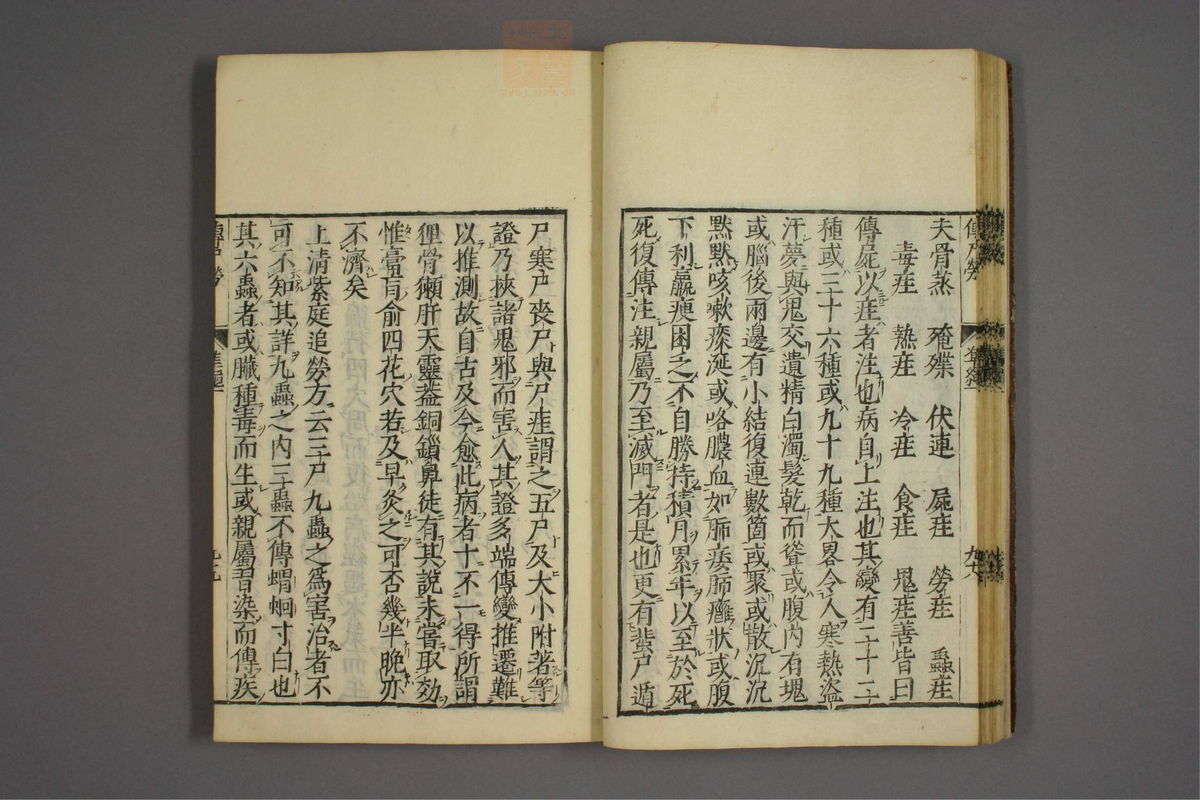 夫骨蒸 殗殜 伏連 屍疰 勞疰 蟲疰
毒疰 熱疰 冷疰 食疰 鬼疰善皆曰
傳屍以疰者注也病自上注也其變有二十二
種或三十六種或九十九種大畧令人寒熱盜
汗夢與鬼交遺精白濁髮乾而聳或腹內有塊
或腦後兩邊有小結復連數箇或聚或散沉沉
默默咳嗽痰涎或咯膿血如肺痿肺癰狀或腹
下利羸瘦困乏不自勝持積月累年以至於死
死復傳注親屬乃至滅門者是也更有蜚尸遁
尸寒尸喪尸與尸疰謂之五尸及大小附著等
證乃挾諸鬼邪而害人其證多端傳變推遷難
以推測故自古及今愈此病者十不一得所謂
狸骨獺肝天靈蓋銅鎖鼻徒有其說未嘗取効
惟膏肓俞四花穴若及早灸之可否幾半晚亦
不濟矣
上清紫庭追勞方云三尸九蟲之爲害治者不
可不知其詳九蟲之內三蟲不傳蝟蛔寸白也
其六蟲者或臟種毒而生或親屬習染而傳疾
傳尸勞
九十八
九十九